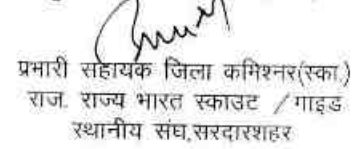 प्रभारी सहायक जिला कमिश्नर(स्का.)
राज. राज्य भारत स्काउट / गाइड
स्थानीय संघ,सरदारशहर